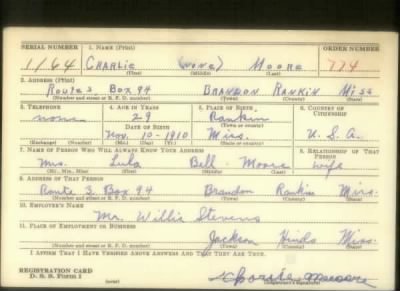 SERIAL NUMBER 1. NAME (Print) ORDER NUMBER
1164 CHARLIE (NONE) MOORE 774
(First) (Middle) (Last)
2. ADDRESS (Print)
ROUTE 3 BOX 94 BRANDON RANKIN MISS
(Number and street or R. F. D. number) (Town) (County) (State)
3. TELEPHONE 4. AGE IN YEARS 5. PLACE OF BIRTH 6. COUNTRY OF CITIZENSHIP
none 29 Rankin
DATE OF BIRTH (Town or county)
Nov. 10-1910 Miss. U.S.A.
(Exchange) (Number) (Mo.) (Day) (Yr.) (State or country)
7. NAME OF PERSON WHO WILL ALWAYS KNOW YOUR ADDRESS 8. RELATIONSHIP OF THAT PERSON
Mrs. Lula Bell Moore wife
(Mr., Mrs., Miss) (First) (Middle) (Last)
9. ADDRESS OF THAT PERSON
Route 3. Box 94 Brandon Rankin Miss.
(Number and street or R. F. D. number) (Town) (County) (State)
10. EMPLOYER'S NAME
Mr. Willie Stevens
11. PLACE OF EMPLOYMENT OR BUSINESS
Jackson Hinds Miss.
(Number and street or R. F. D. number) (Town) (County) (State)
I AFFIRM THAT I HAVE VERIFIED ABOVE ANSWERS AND THAT THEY ARE TRUE.
REGISTRATION CARD
D. S. S. Form 1 (over) (Registrant's signature)